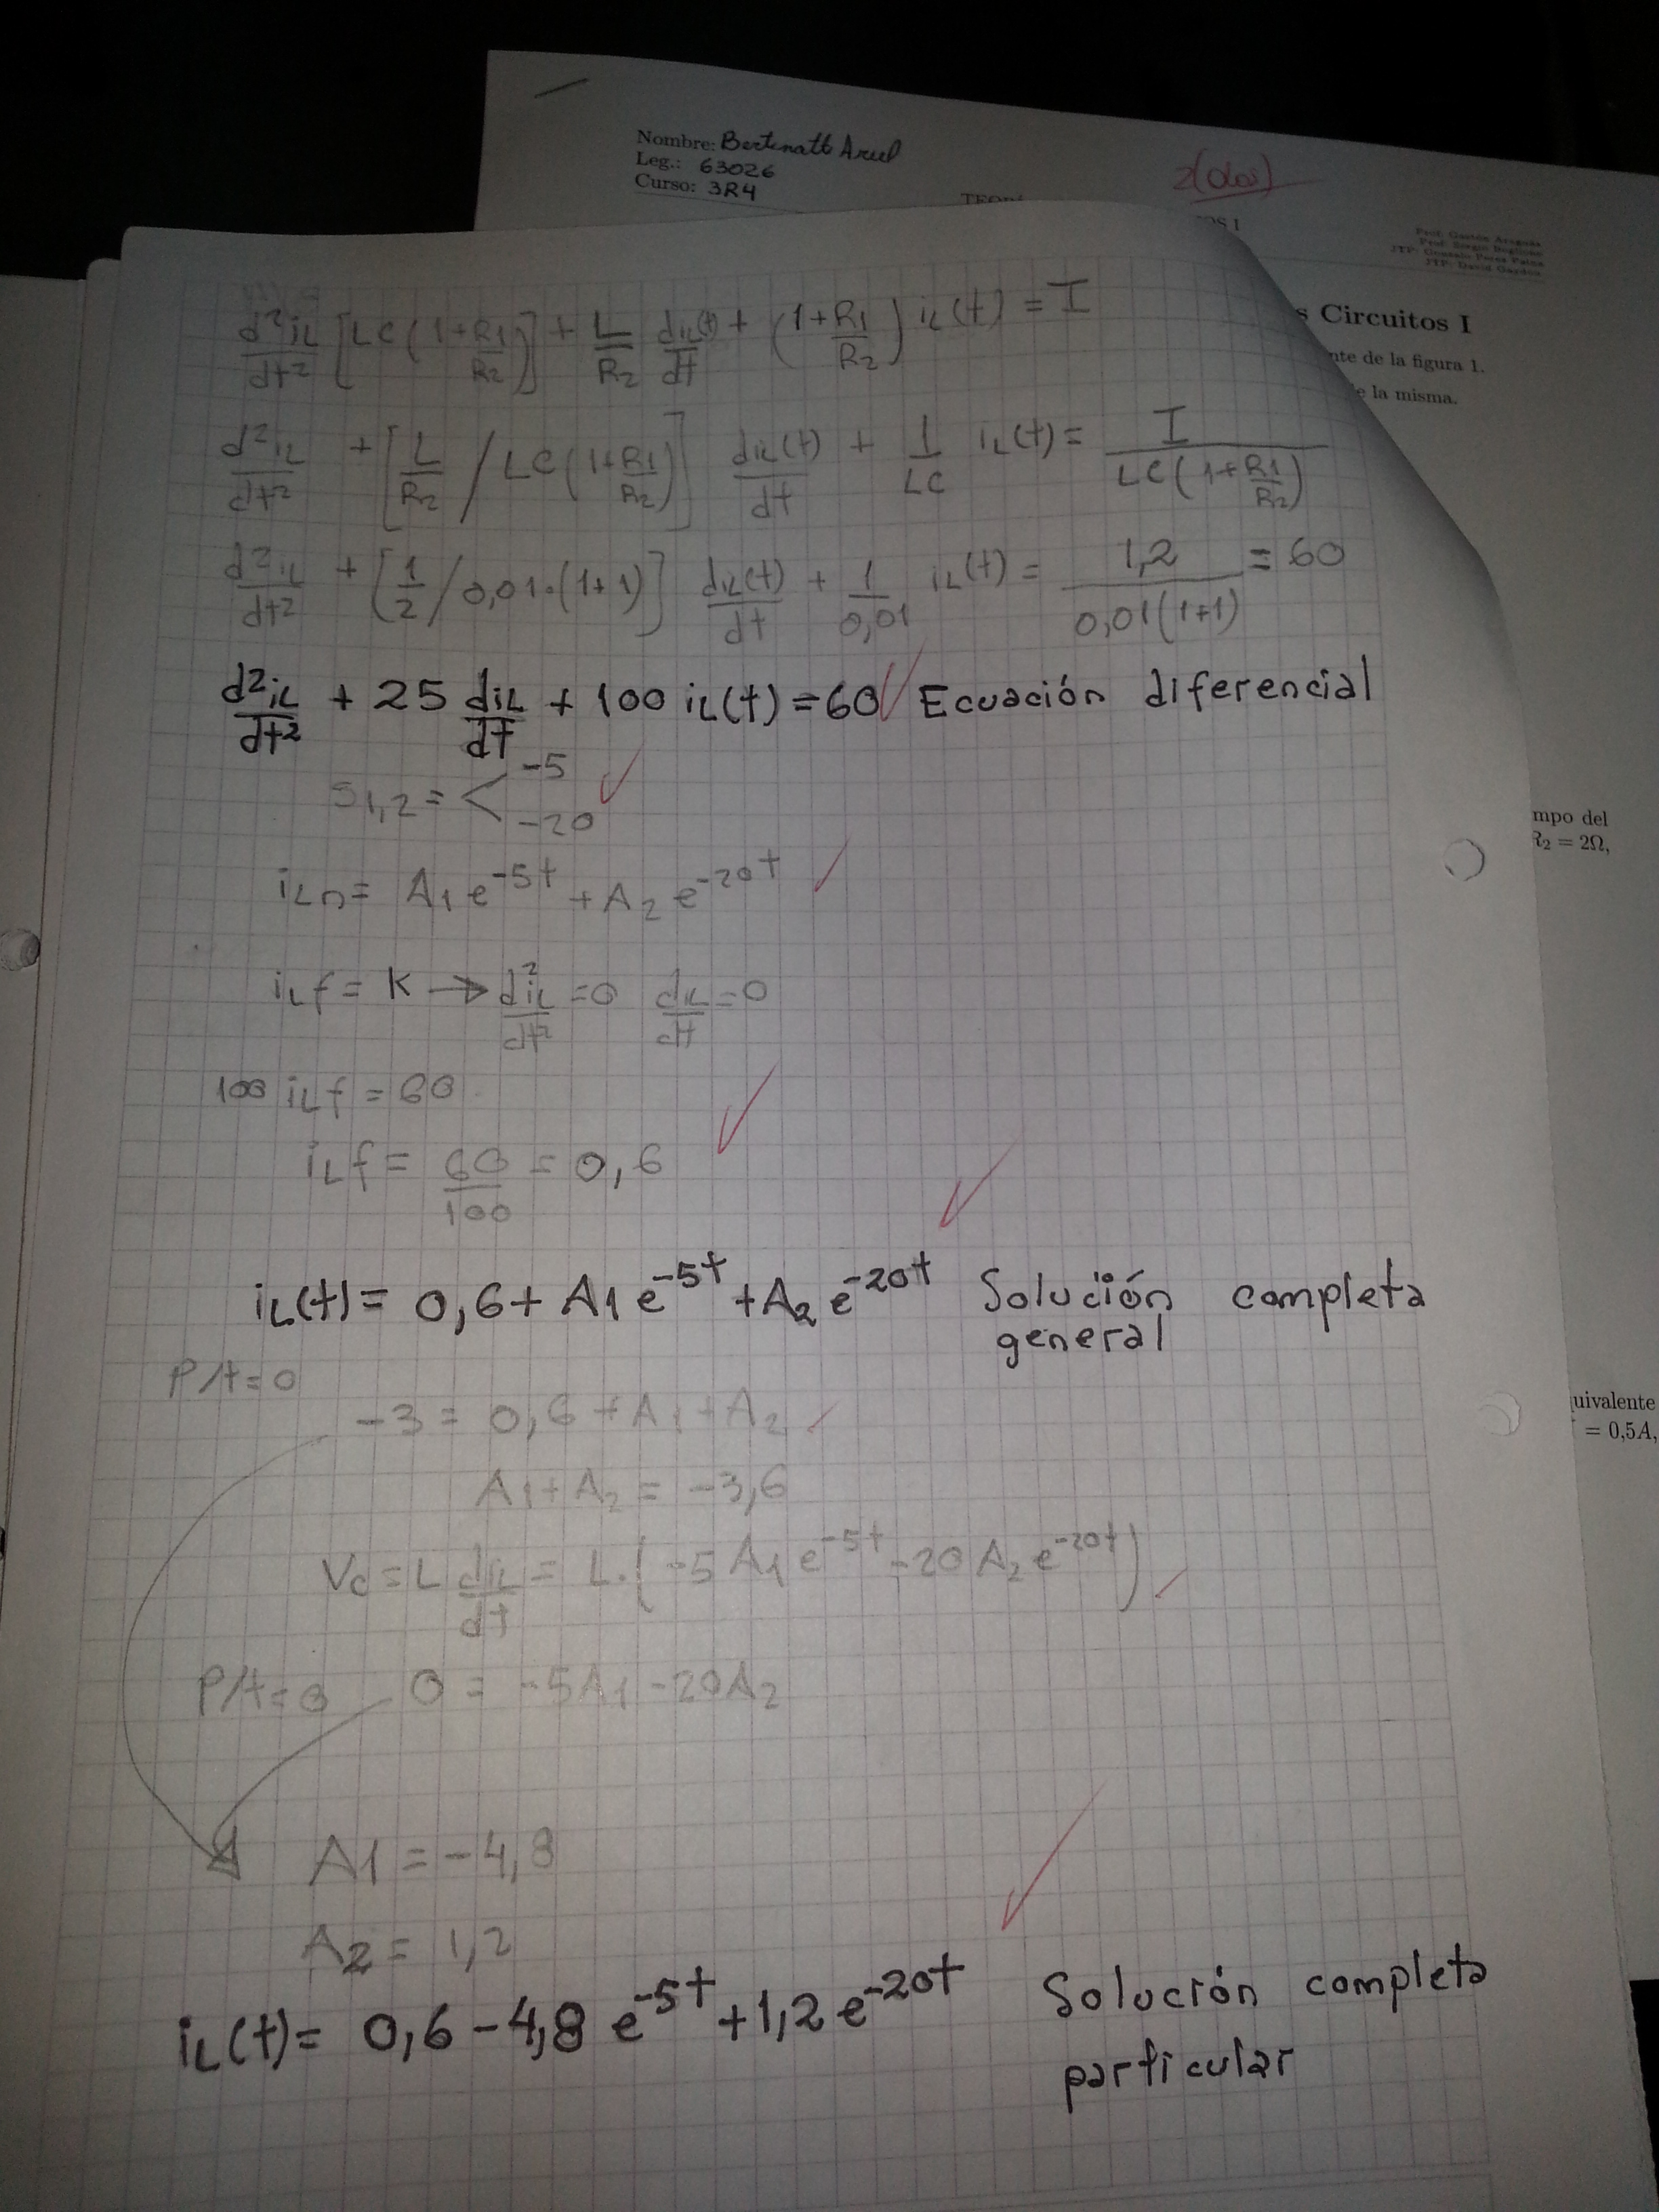 Nombre: Bertinatti Ariel
Leg.: 63026
Curso: 3R4
2(dos)
TEORÍ
OS I
Prof: Gastón Araguás
JTP: Gonzalo Perez Paina
JTP: David Gaydou
s Circuitos I
nte de la figura 1.
e la misma.
mpo del
R₂ = 2Ω,
uivalente
= 0,5A,
d²iL/dt² [LC(1+R1/R2)] + L/R2 diL(t)/dt + (1+R1/R2) iL(t) = I
d²iL/dt² + [L/R2 / LC(1+R1/R2)] diL(t)/dt + 1/LC iL(t) = I/LC(1+R1/R2)
d²iL/dt² + [1/2 / 0,01·(1+1)] diL(t)/dt + 1/0,01 iL(t) = 1,2/0,01(1+1) = 60
d²iL/dt² + 25 diL/dt + 100 iL(t) = 60 Ecuación diferencial
S1,2 = < -5
-20
iLn = A1 e^-5t + A2 e^-20t
iLf = K → d²iL/dt² = 0 diL/dt = 0
100 iLf = 60
iLf = 60/100 = 0,6
iL(t) = 0,6 + A1 e^-5t + A2 e^-20t Solución completa
general
P/t=0
-3 = 0,6 + A1 + A2
A1 + A2 = -3,6
Vc = L diL/dt = L·(-5 A1 e^-5t - 20 A2 e^-20t)
P/t=0 0 = -5A1 - 20A2
A1 = -4,8
A2 = 1,2
iL(t) = 0,6 - 4,8 e^-5t + 1,2 e^-20t Solución completa
particular